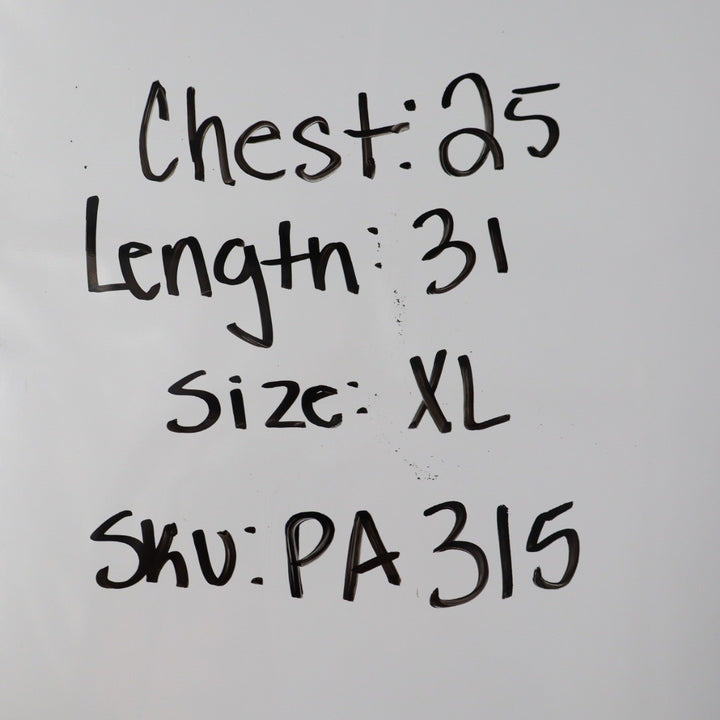 Chest: 25
Length: 31
Size: XL
SKU: PA 315